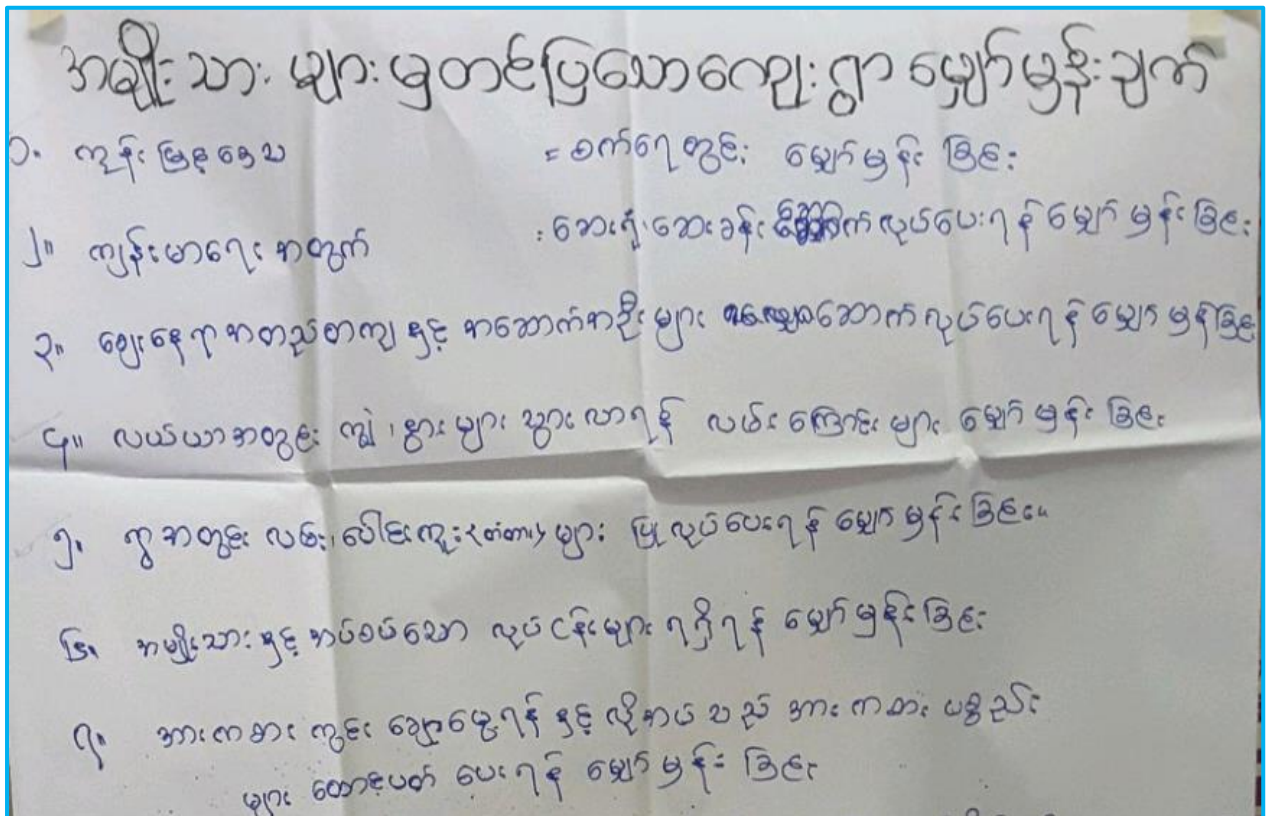 အမျိုးသား များမှတင်ပြသောကျေးရွာ မျှော်မှန်းချက်
၁. ကုန်းမြင့်ဒေသ = စက်ရေတွင်း မျှော်မှန်းခြင်း
၂။ ကျန်းမာရေးအတွက် : ဆေးရုံ၊ဆေးခန်း ဆောက်လုပ်ပေးရန် မျှော်မှန်းခြင်း
၃။ ဈေးနေရာအတည်တကျနှင့် အဆောက်အဦးများ ဆောက်လုပ်ပေးရန် မျှော်မှန်းခြင်း
၄။ လယ်ယာအတွင်း ကျွဲ၊နွားများ သွားလာရန် လမ်းကြောင်းများ မျှော်မှန်းခြင်း
၅. ရွာအတွင်း လမ်း၊ပေါင်းကူး(တံတား)များ ပြုလုပ်ပေးရန် မျှော်မှန်းခြင်း။
၆. အမျိုးသားနှင့်အပ်စပ်သော လုပ်ငန်းများ ရရှိရန် မျှော်မှန်းခြင်း
၇. အားကစားကွင်း ချဲ့ပေးရန်နှင့် လိုအပ်သည့် အားကစားပစ္စည်း
များ ထောင့်ပတ် ပေးရန် မျှော်မှန်းခြင်း